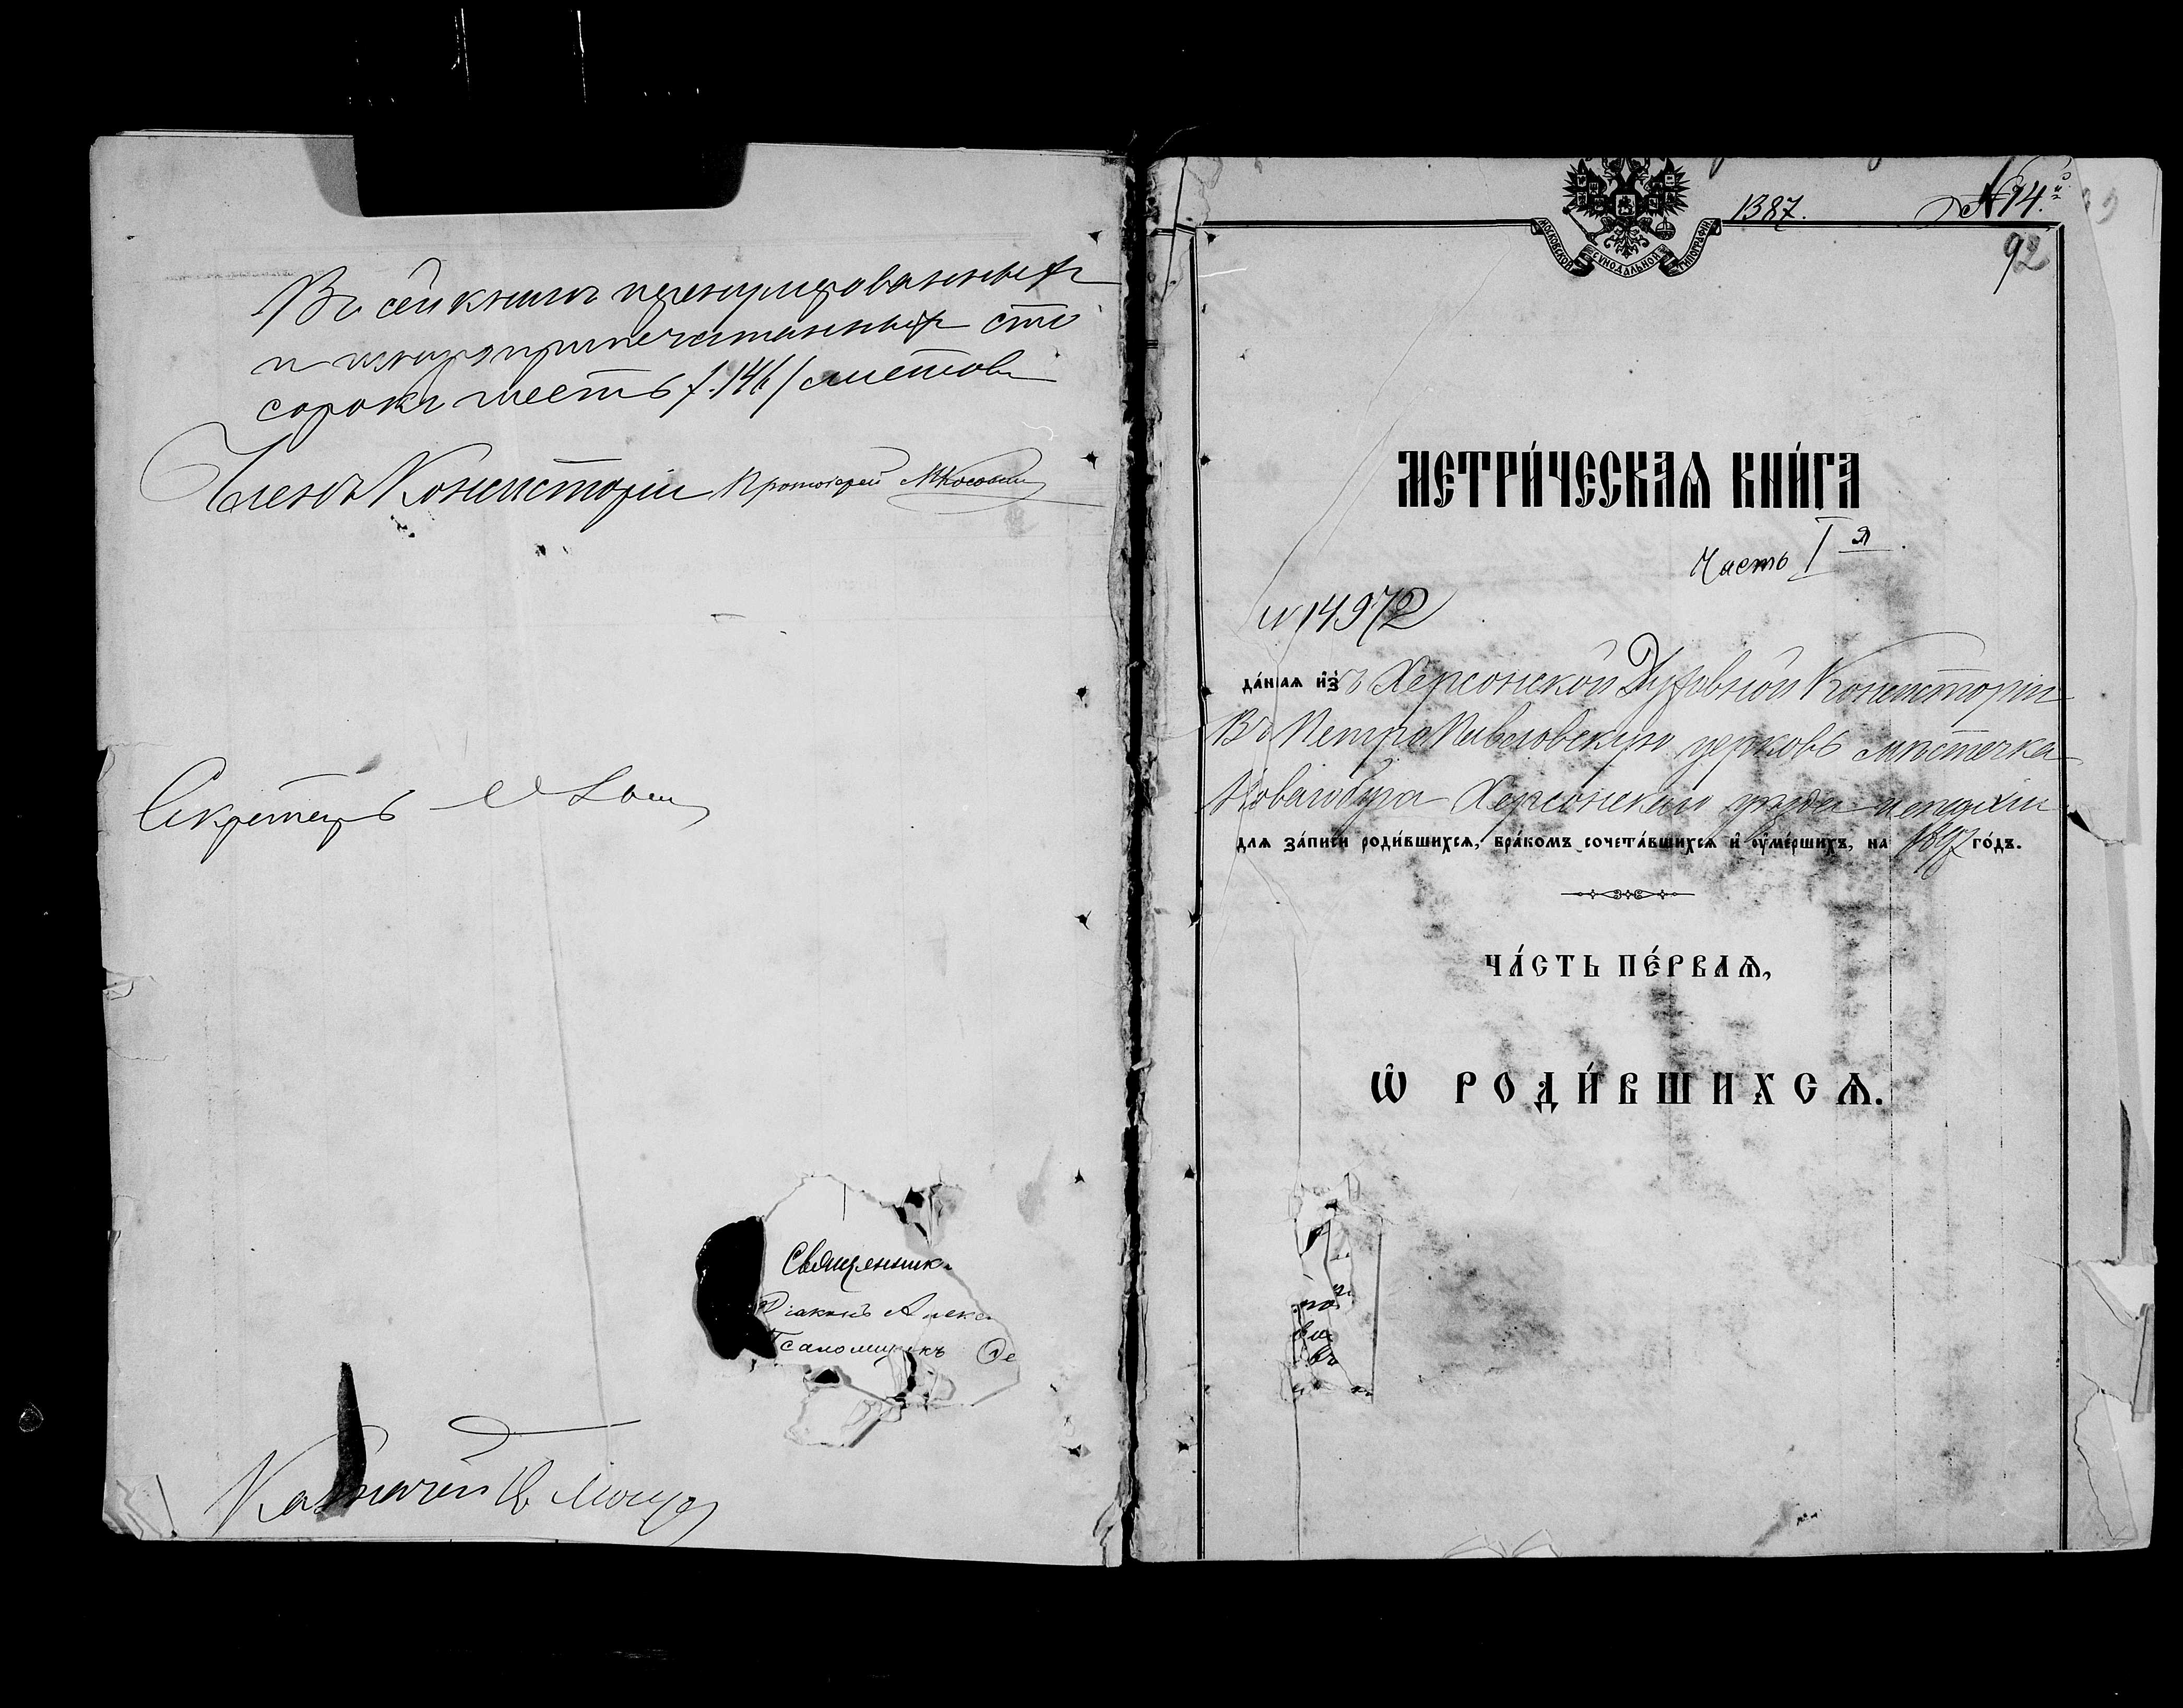 Въ сей книгѣ пренумерованныхъ
и шнуроприпечатанныхъ сто
сорокъ шесть /.146/ листовъ
Членъ Консисторіи Протоіерей
Секретарь
Священникъ
Діаконъ Алекс
Псаломщикъ Ѳе
Казначей
МОСКОВСКОЙ СѴНОДАЛЬНОЙ ТИПОГРАФІИ
1387.
№14.
92
МЕТРИ́ЧЕСКАѦ КНИ́ГА
Часть I я.
№ 14972
да́нная и҆зъ Херсонской Духовной Консисторіи
Въ Петро Павловскую церковь мѣстечка
Новагобуга Херсонскаго уѣзда и епархіи
для за́писи роди́вшихсѧ, бра́комъ сочета́вшихсѧ и҆ ᲂу҆ме́ршихъ, на 1892 го́дъ.
ЧА́СТЬ ПЕ́РВАѦ,
Ѡ҆ РОДИ́ВШИХСѦ.